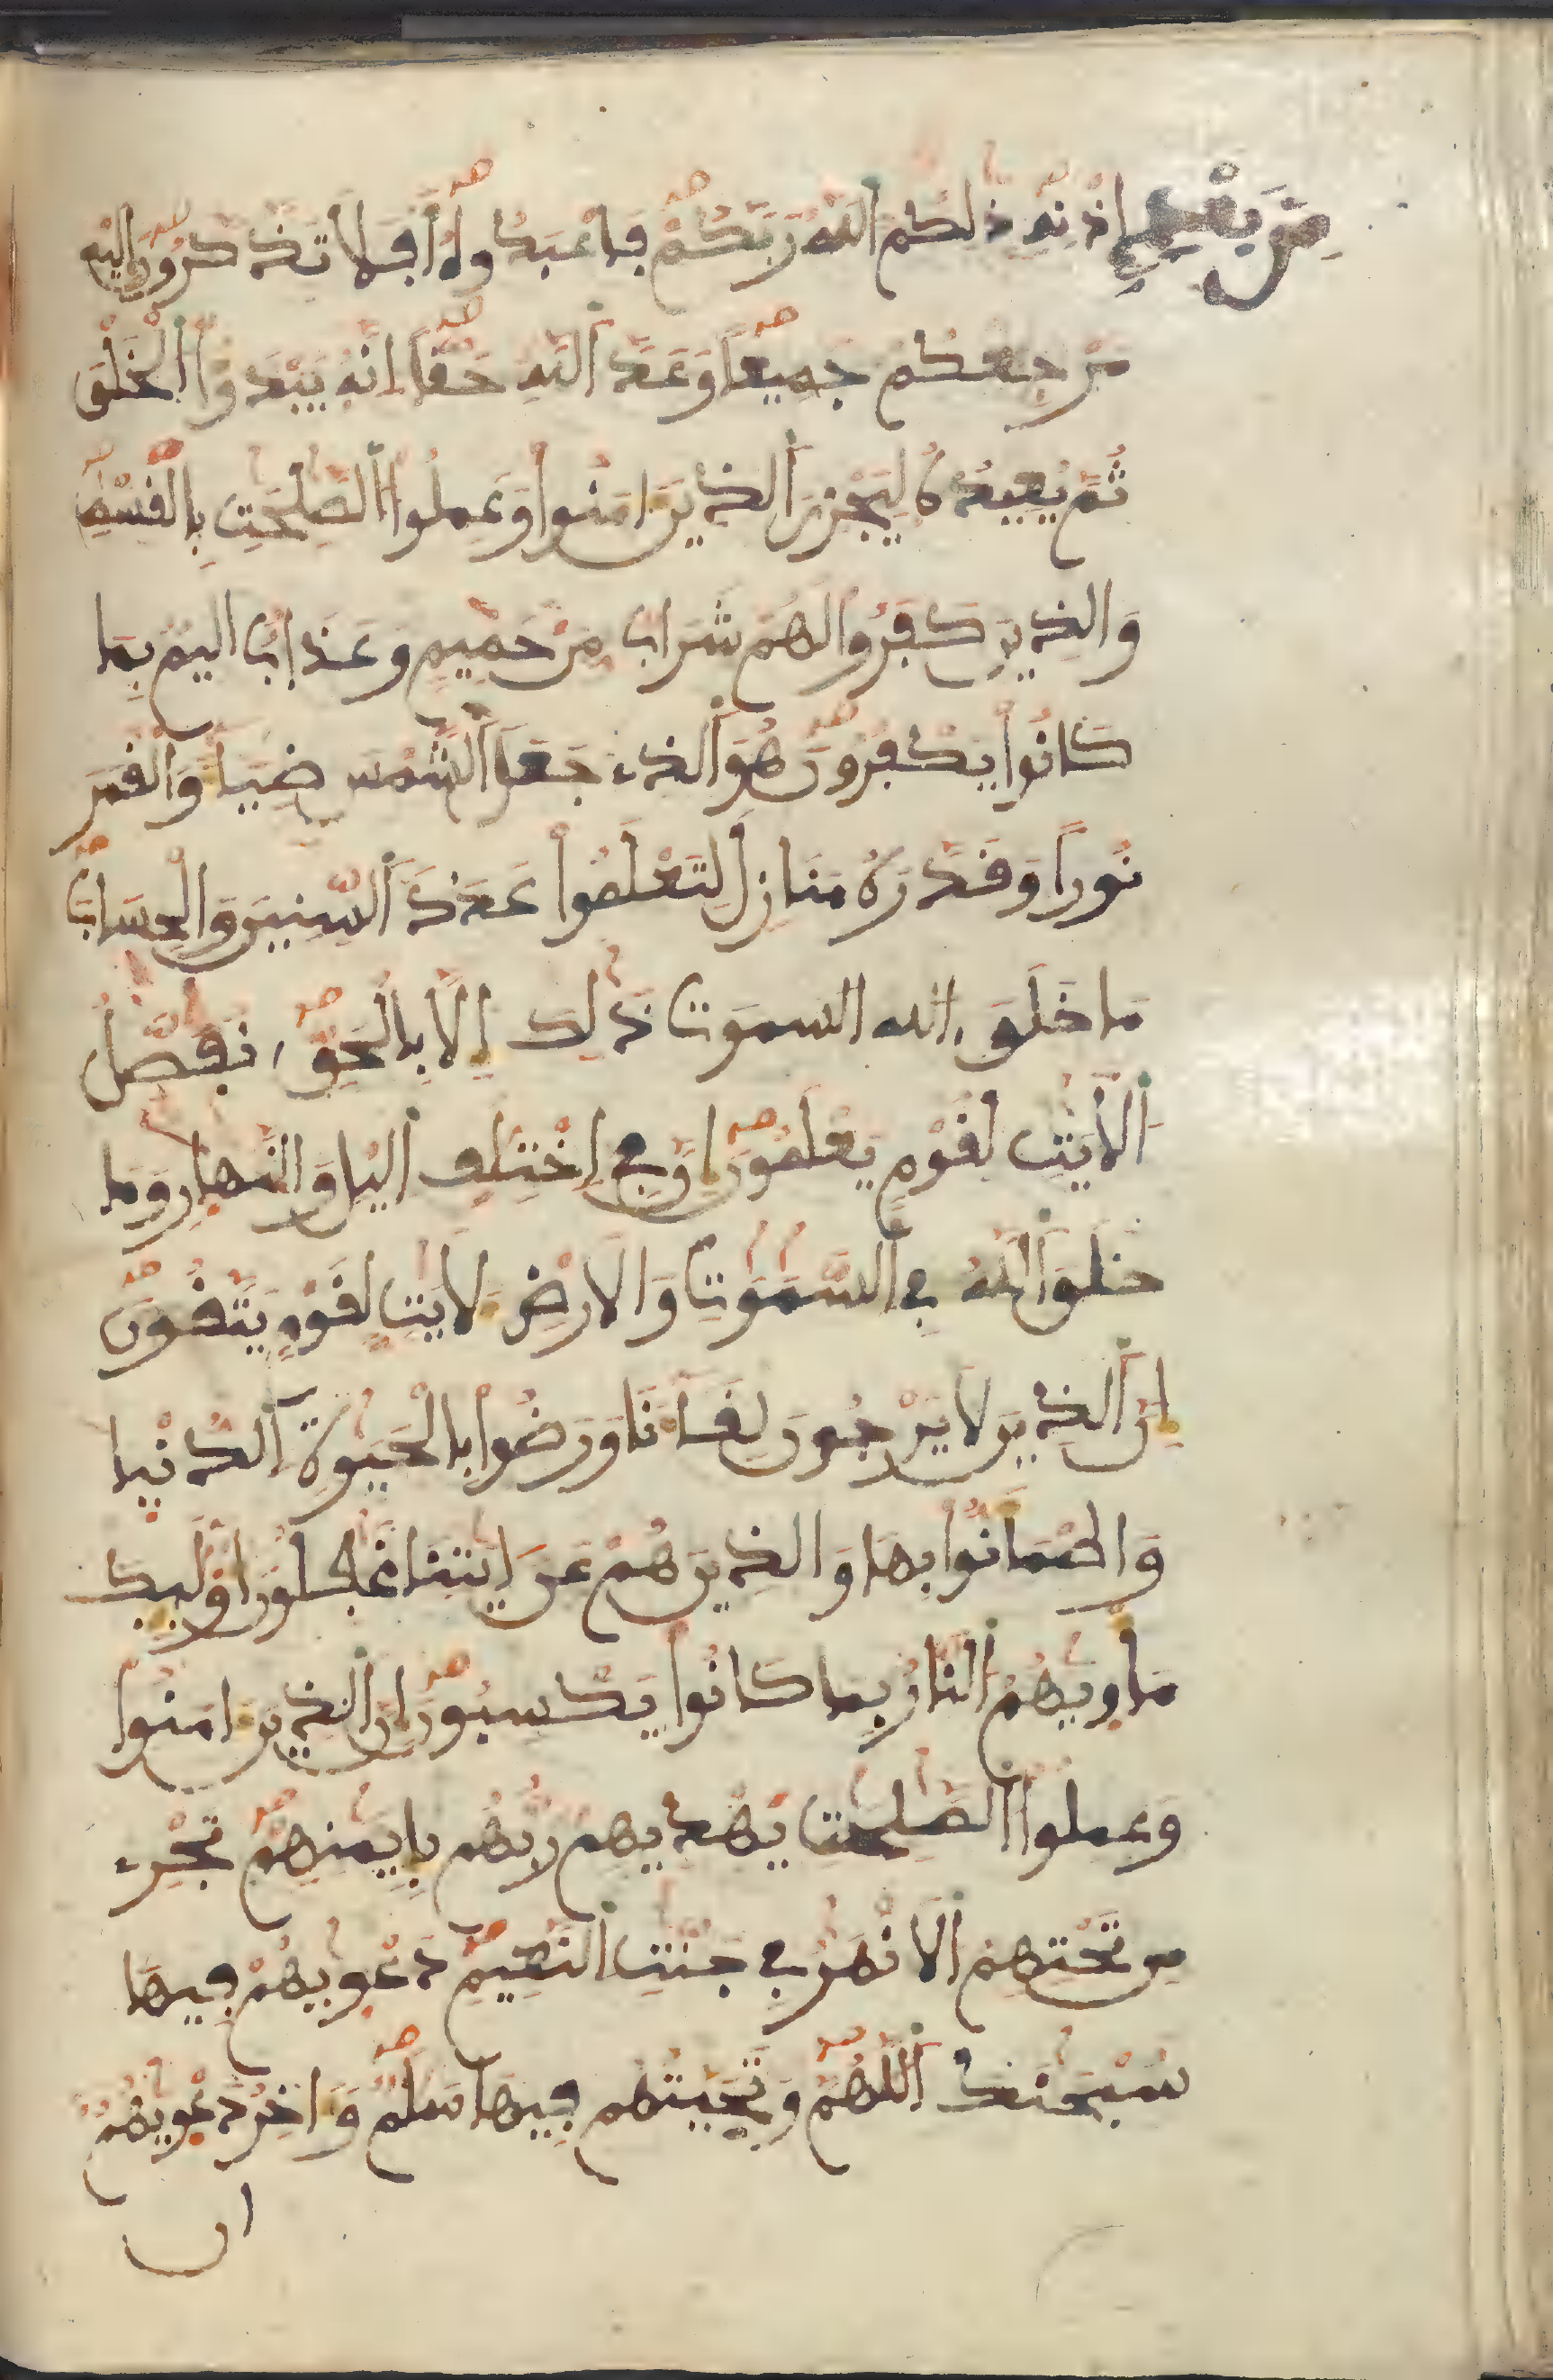 مِنۢ بَعْدِ إِذْنِهِ ذَٰلِكُمُ اللَّهُ رَبُّكُمْ فَاعْبُدُوهُ أَفَلَا تَذَّكَّرُونَ إِلَيْهِ
مَرْجِعُكُمْ جَمِيعًا وَعْدَ اللَّهِ حَقًّا إِنَّهُ يَبْدَؤُا الْخَلْقَ
ثُمَّ يُعِيدُهُ لِيَجْزِيَ الَّذِينَ ءَامَنُوا وَعَمِلُوا الصَّٰلِحَٰتِ بِالْقِسْطِ
وَالَّذِينَ كَفَرُوا لَهُمْ شَرَابٌ مِّنْ حَمِيمٍ وَعَذَابٌ أَلِيمٌ بِمَا
كَانُوا يَكْفُرُونَ هُوَ الَّذِي جَعَلَ الشَّمْسَ ضِيَاءً وَالْقَمَرَ
نُورًا وَقَدَّرَهُ مَنَازِلَ لِتَعْلَمُوا عَدَدَ السِّنِينَ وَالْحِسَابَ
مَا خَلَقَ الله السموت ذَٰلِكَ إِلَّا بِالْحَقِّ نُفَصِّلُ
الْأَيَٰتِ لِقَوْمٍ يَعْلَمُونَ إِنَّ فِي اخْتِلَٰفِ اليْلِ وَالنَّهَارِ وَمَا
خَلَقَ اللَّهُ فِي السَّمَٰوَٰتِ وَالْأَرْضِ لَأَيَٰتٍ لِّقَوْمٍ يَتَّقُونَ
إِنَّ الَّذِينَ لَا يَرْجُونَ لِقَاءَنَا وَرَضُوا بِالْحَيَوٰةِ الدُّنْيَا
وَاطْمَأَنُّوا بِهَا وَالَّذِينَ هُمْ عَنْ ءَايَٰتِنَا غَٰفِلُونَ أُوْلَٰئِكَ
مَأْوَيٰهُمُ النَّارُ بِمَا كَانُوا يَكْسِبُونَ إِنَّ الَّذِينَ ءَامَنُوا
وَعَمِلُوا الصَّٰلِحَٰتِ يَهْدِيهِمْ رَبُّهُم بِإِيمَٰنِهِمْ تَجْرِي
مِن تَحْتِهِمُ الْأَنْهَٰرُ فِي جَنَّٰتِ النَّعِيمِ دَعْوَيٰهُمْ فِيهَا
سُبْحَٰنَكَ اللَّهُمَّ وَتَحِيَّتُهُمْ فِيهَا سَلَٰمٌ وَءَاخِرُ دَعْوَيٰهُمْ
ان